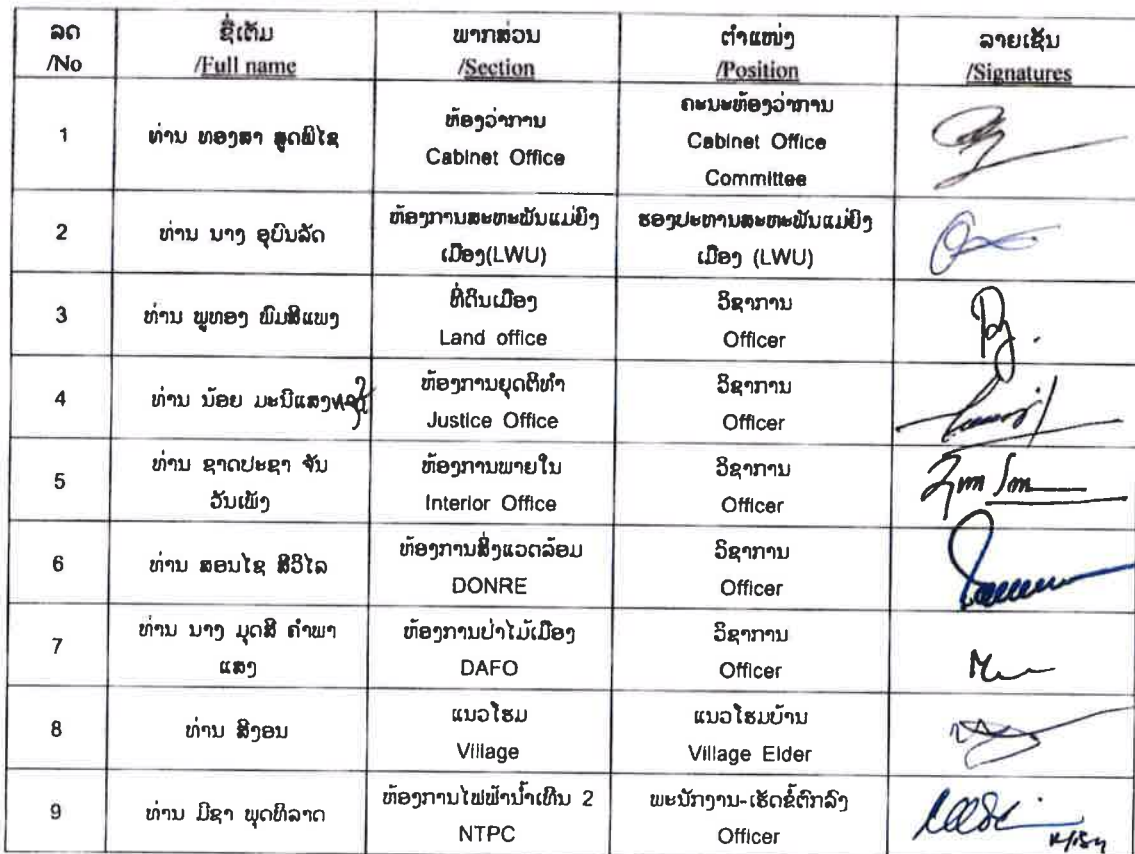 ລດ
/No
ຊື່ເຕັມ
/Full name
ພາກສ່ວນ
/Section
ຕຳແໜ່ງ
/Position
ລາຍເຊັນ
/Signatures
1
ທ່ານ ທອງສາ ສຸດພິໄຊ
ຫ້ອງວ່າການ
Cabinet Office
ຄະນະຫ້ອງວ່າການ
Cabinet Office
Committee
2
ທ່ານ ນາງ ອຸບົນລັດ
ຫ້ອງການສະຫະພັນແມ່ຍິງ
ເມືອງ(LWU)
ຮອງປະທານສະຫະພັນແມ່ຍິງ
ເມືອງ (LWU)
3
ທ່ານ ພູທອງ ພົມສີແພງ
ທີ່ດິນເມືອງ
Land office
ວິຊາການ
Officer
4
ທ່ານ ນ້ອຍ ມະນີແສງ
ຫ້ອງການຍຸດຕິທຳ
Justice Office
ວິຊາການ
Officer
5
ທ່ານ ຊາດປະຊາ ຈັນ
ວັນເພັງ
ຫ້ອງການພາຍໃນ
Interior Office
ວິຊາການ
Officer
6
ທ່ານ ສອນໄຊ ສີວິໄລ
ຫ້ອງການສິ່ງແວດລ້ອມ
DONRE
ວິຊາການ
Officer
7
ທ່ານ ນາງ ມຸດສີ ຄຳພາ
ແສງ
ຫ້ອງການປ່າໄມ້ເມືອງ
DAFO
ວິຊາການ
Officer
8
ທ່ານ ສີງອນ
ແນວໂຮມ
Village
ແນວໂຮມບ້ານ
Village Elder
9
ທ່ານ ມີຊາ ພຸດທິລາດ
ຫ້ອງການໄຟຟ້ານ້ຳເທີນ 2
NTPC
ພະນັກງານ-ເຮັດຂໍ້ຕົກລົງ
Officer